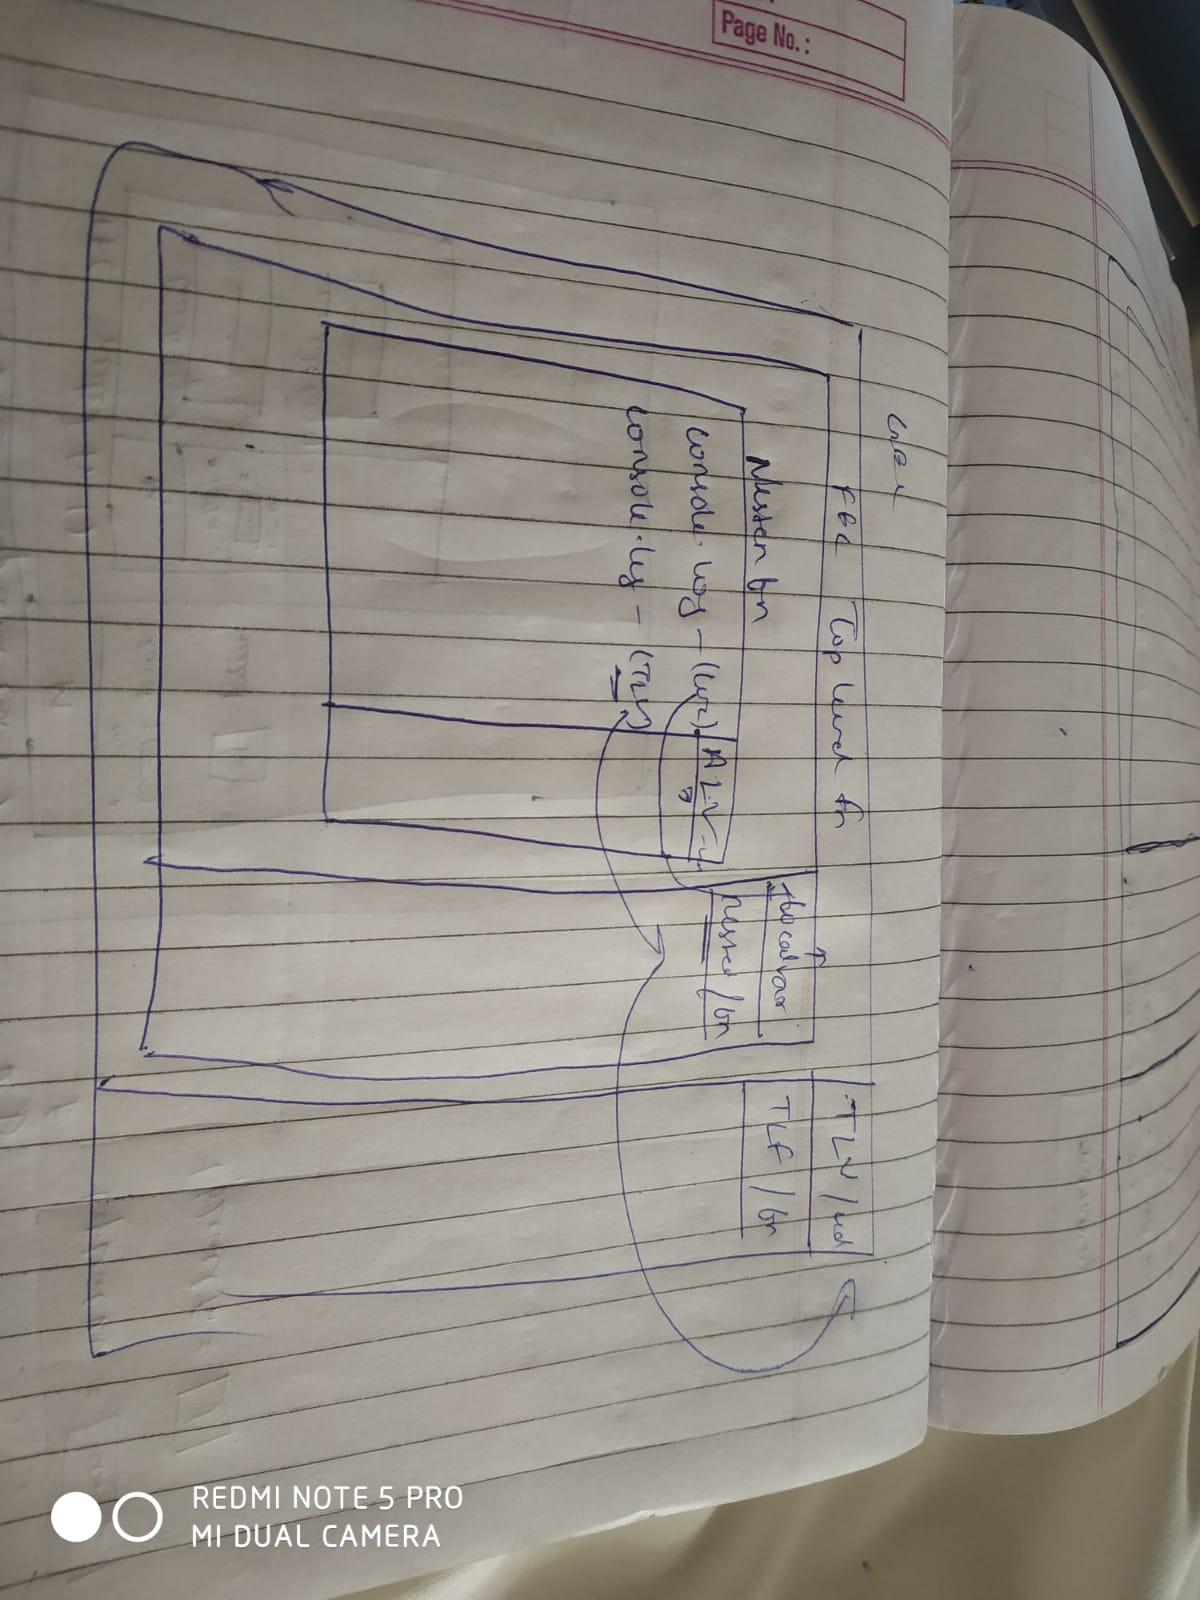 Page No.:
GEC
FEC Top level fn
Nested fn
console.log - (LV)
console.log - (TLV)
ALV
local var
nested / fn
TLV / ud
TLF / fn
REDMI NOTE 5 PRO
MI DUAL CAMERA